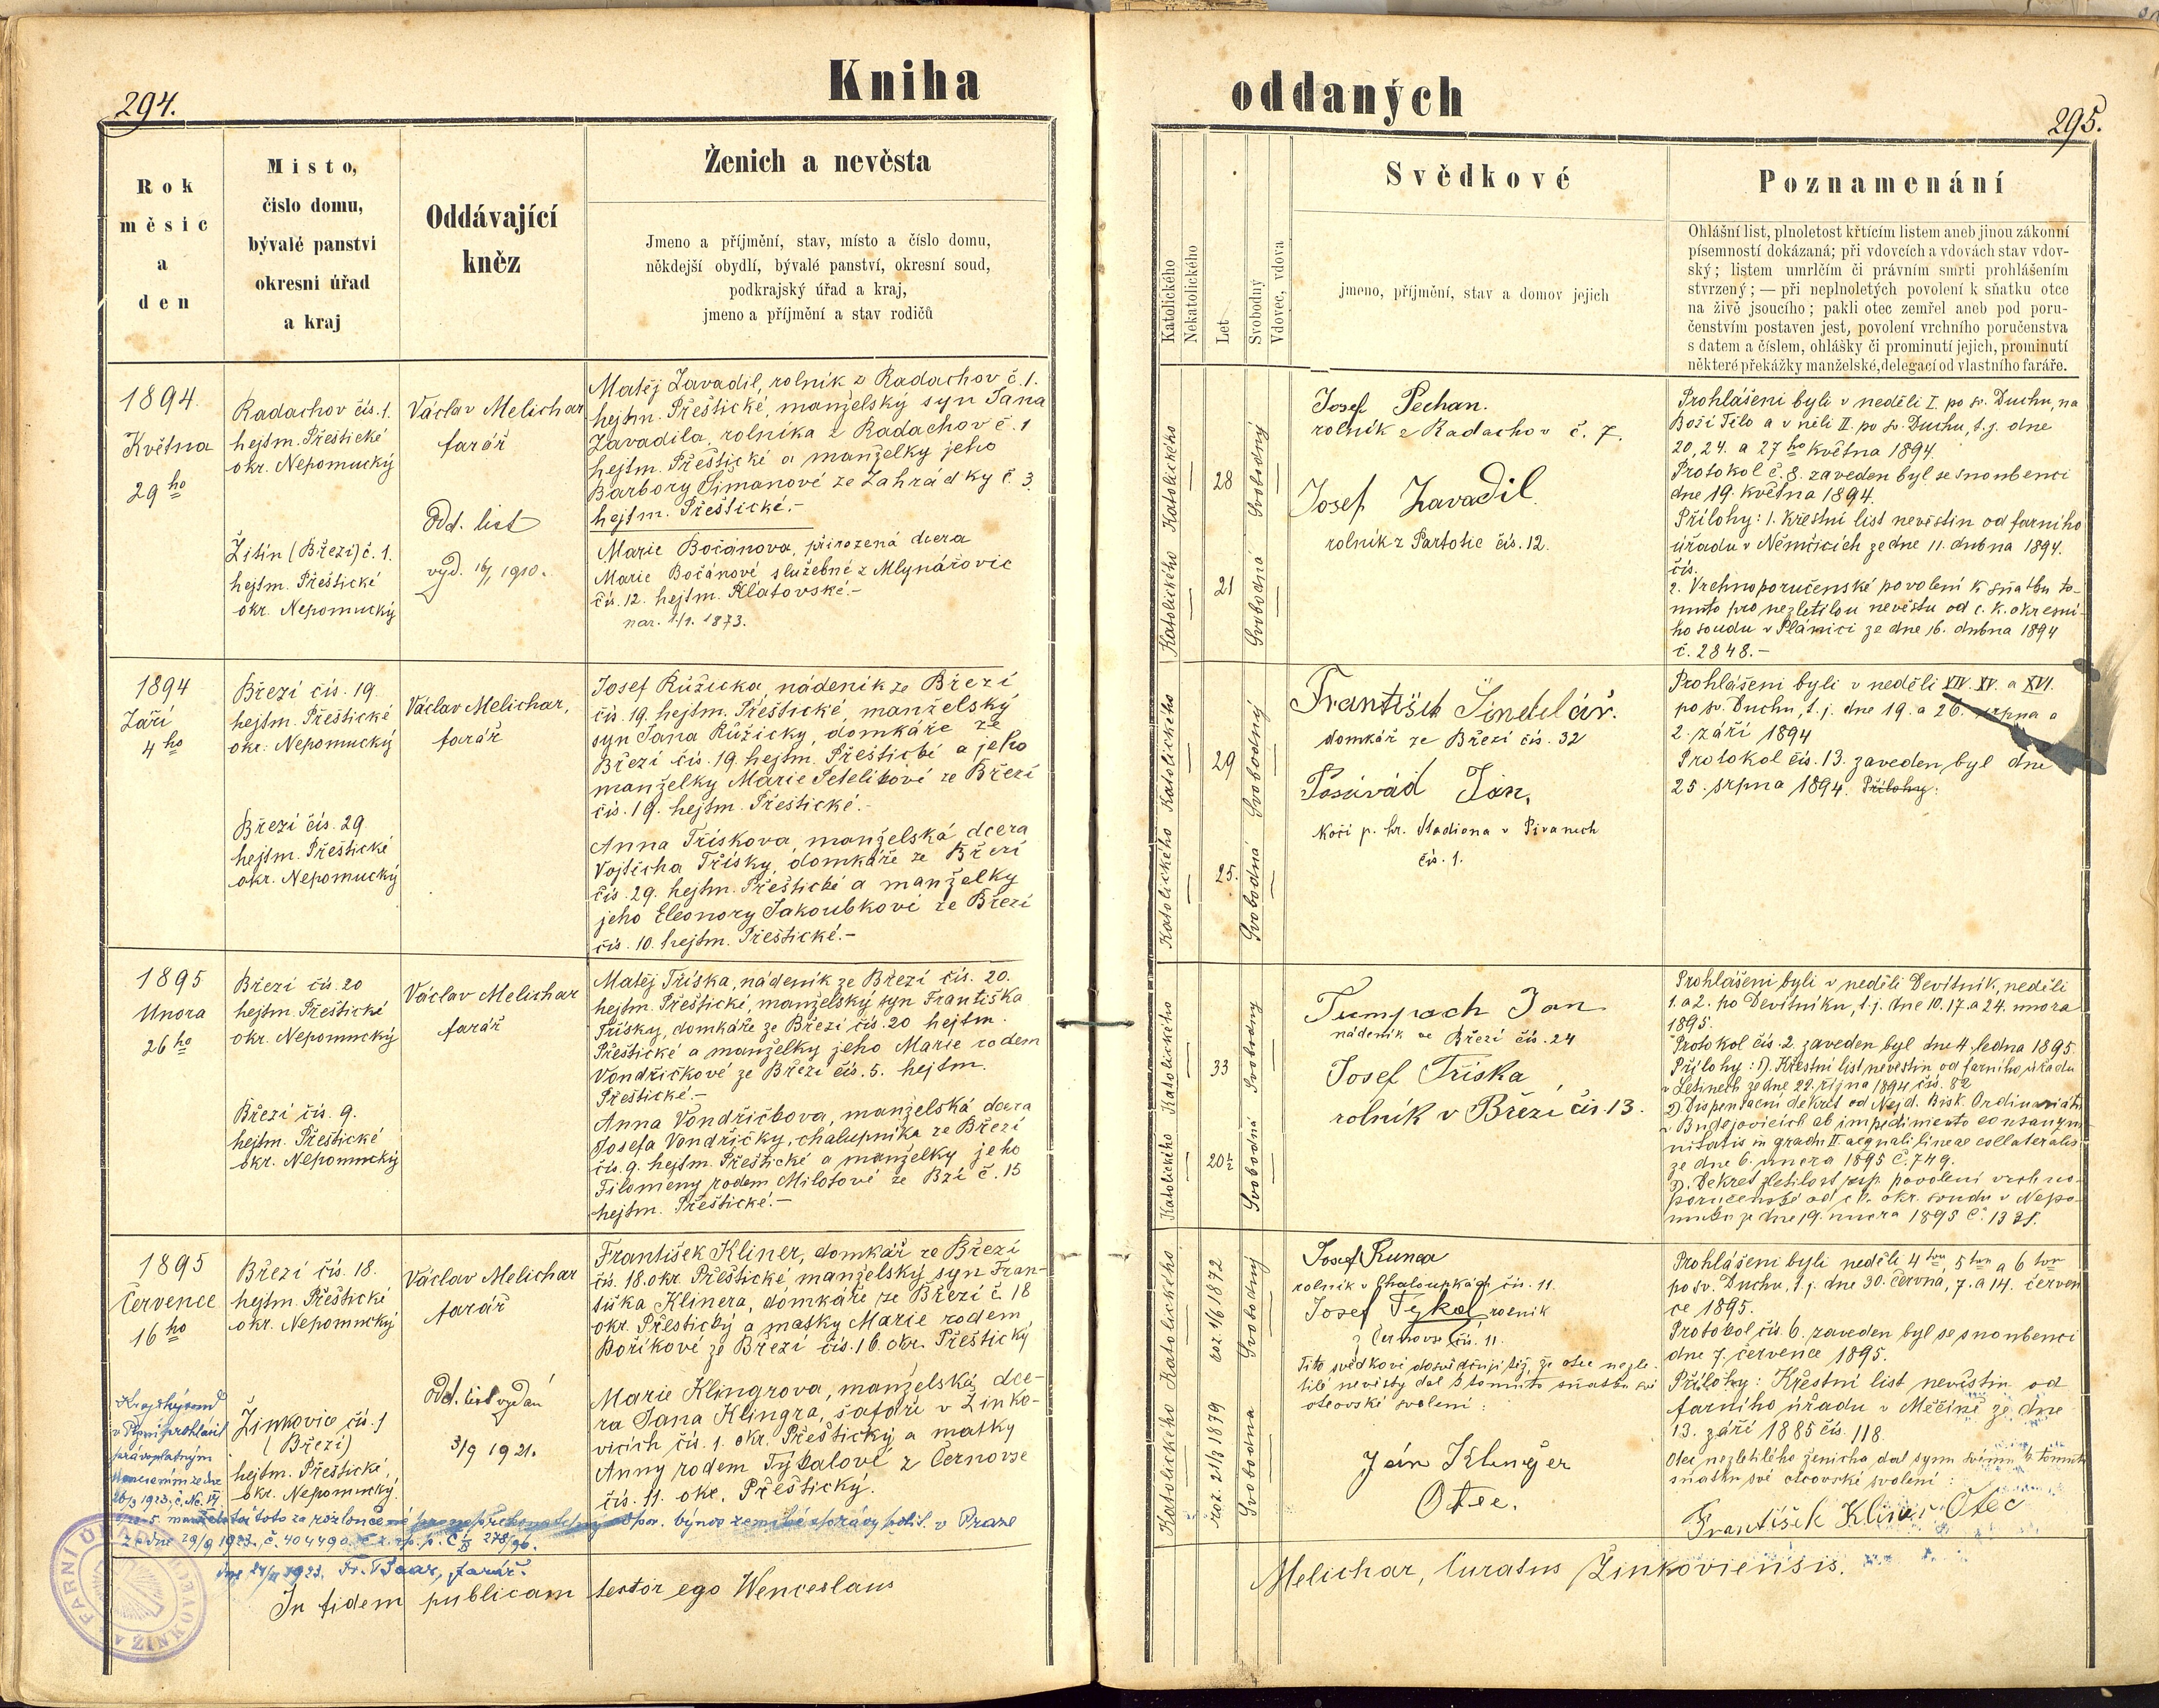 294.
Kniha
Rok
měsic
a
den
Misto,
čislo domu,
bývalé panstvi
okresni úřad
a kraj
Oddávající
kněz
Ženich a nevěsta
Jmeno a příjmění, stav, místo a číslo domu,
někdejší obydlí, bývalé panství, okresní soud,
podkrajský úřad a kraj,
jmeno a příjmění a stav rodičů
1894
Května
29 ho
Radachov čís. 1.
hejtm. Přeštické
okr. Nepomucký
Žitín (Březí) č. 1.
hejtm. Přeštické
okr. Nepomucký
Václav Melichar
farář
Odd. list
vyd. 1910.
Matěj Zavadil, rolník z Radachov č. 1.
hejtm. Přeštické, manželský syn Jana
Zavadila, rolníka z Radachov č. 1
hejtm. Přeštické a manželky jeho
Barbory Šimanové ze Zahrádky č. 3.
hejtm. Přeštické.-
Marie Bočánova, přirozená dcera
Marie Bočánové, služebné z Mlynářovic
čís. 12. hejtm. Klatovské.-
nar. 1873.
1894
Září
4 ho
Březí čís. 19.
hejtm. Přeštické
okr. Nepomucký
Březí čís. 29.
hejtm. Přeštické
okr. Nepomucký
Václav Melichar,
farář
Josef Růžicka, nádeník ze Březí
čís. 19. hejtm. Přeštické, manželský
syn Jana Růžicky, domkáře ze
Březí čís. 19. hejtm. Přeštické a jeho
manželky Marie Petelikové ze Březí
čís. 19. hejtm. Přeštické.-
Anna Třískova, manželská dcera
Vojtěcha Třísky, domkáře ze Březí
čís. 29. hejtm. Přeštické a manželky
jeho Eleonory Jakoubkové ze Březí
čís. 10. hejtm. Přeštické.-
1895
Unora
26 ho
Březí čís. 20
hejtm. Přeštické
okr. Nepomucký
Březí čís. 9.
hejtm. Přeštické
okr. Nepomucký
Václav Melichar
farář
Matěj Tříska, nádeník ze Březí čís. 20.
hejtm. Přeštické, manželský syn Františka
Třísky, domkáře ze Březí čís. 20 hejtm.
Přeštické a manželky jeho Marie rodem
Vondřičkové ze Březí čís. 5. hejtm.
Přeštické.-
Anna Vondřičkova, manželská dcera
Josefa Vondřičky, chalupníka ze Březí
čís. 9. hejtm. Přeštické a manželky jeho
Filomeny rodem Milotové ze Bzí č. 15
hejtm. Přeštické.-
1895
Července
16 ho
Březí čís. 18.
hejtm. Přeštické
okr. Nepomucký
Žinkovic čís. 1
(Březí)
hejtm. Přeštické,
okr. Nepomucký.
Václav Melichar
farář
Odd. list vydán
3/9 1921.
František Kliner, domkář ze Březí
čís. 18. okr. Přeštické manželský syn Fran-
tiška Klinera, domkáře, ze Březí č. 18
okr. Přeštický a matky Marie rodem
Boříkové ze Březí čís. 16. okr. Přeštický
Marie Klingrova, manželská dce-
ra Jana Klingra, šafáře v Žinko-
vicích čís. 1. okr. Přeštický a matky
Anny rodem Týkalové z Černovse
čís. 11. okr. Přeštický.
Krajský soud
v Plzni prohlásil
právoplatným
usnesením ze dne
1923, č. Nc. VI
manželství toto za rozloučené výnos zemské správy polit. v Praze
ze dne 29/9 1923, č. 404490.
1923. Fr. Baar, farář.
FARNÍ ÚŘAD
v ŽINKOVECH
In fidem publicam testor ego Wenceslaus
oddaných
295.
Katolického
Nekatolického
Let
Svobodný
Vdovec, vdova
Svědkové
jmeno, příjmění, stav a domov jejich
Poznamenání
Ohlášní list, plnoletost křtícím listem aneb jinou zákonní
písemností dokázaná; při vdovcích a vdovách stav vdov-
ský; listem umrlčím či právním smrti prohlášením
stvrzený; — při neplnoletých povolení k sňatku otce
na živě jsoucího; pakli otec zemřel aneb pod poru-
čenstvím postaven jest, povolení vrchního poručenstva
s datem a číslem, ohlášky či prominutí jejich, prominutí
některé překážky manželské, delegací od vlastního faráře.
Katolického
28
Svobodný
Katolického
21
Svobodná
Josef Pechan.
rolník z Radachov č. 7.
Josef Zavadil
rolník z Partotic čís. 12.
Prohlášeni byli v neděli I. po sv. Duchu, na
Boží Tělo a v něli II. po sv. Duchu, t. j. dne
20, 24. a 27 ho května 1894.
Protokol č. 8. zaveden byl se snoubenci
dne 19. května 1894.
Přílohy: 1. Křestní list nevěstin od farního
úřadu v Němčicích ze dne 11. dubna 1894.
čís.
2. Vrchnoporučenské povolení k sňatku to-
muto pro nezletilou nevěstu od c. k. okresní-
ho soudu v Plánici ze dne 16. dubna 1894
č. 2848.-
Katolického
29
Svobodný
Katolického
25.
Svobodná
František Šindelář.
domkář ze Březí čís. 32
Posávád Jan,
kočí p. hr. Stadiona v Pivanech
čís. 1.
Prohlášeni byli v neděli XIV. XV. a XVI.
po sv. Duchu, t. j. dne 19. a 26. srpna a
2. září 1894
Protokol čís. 13. zaveden byl dne
25. srpna 1894. Přílohy:
Katolického
33
Svobodný
Katolického
20½
Svobodná
Tumpach Jan
nádeník ze Březí čís. 24
Josef Tříska,
rolník v Březí čís. 13.
Prohlášeni byli v neděli Devítník, neděli
1. a 2. po Devítníku, t. j. dne 10. 17. a 24. unora
1895.
Protokol čís. 2. zaveden byl dne 4. ledna 1895.
Přílohy: 1). Křestní list nevěstin od farního úřadu
v Letinech ze dne 22. října 1894 čís. 82
2). Dispensační dekret od Nejd. Bisk. Ordinariátu
v Budějovicích ab impedimento consangui-
nitatis in gradu II aequali lineae collateralis
ze dne 6. února 1895 č. 749.
3). Dekret zletilosti resp. povolení vrchno-
poručenské od c. k. okr. soudu v Nepo-
muku ze dne 19. února 1895 č. 1321.
Katolického
roz. 1/6 1872
Svobodný
Katolického
roz. 21/3 1879
Svobodna
Josef Kunca
rolník v Chaloupkách čís. 11.
Josef Tykal rolník
z Černovse čís. 11.
Tito svědkové dosvědčují též, že otec nezle-
tilé nevěsty dal k tomuto sňatku své
otcovské svolení:
Ján Klinger
Otec.
Prohlášeni byli neděli 4 tou, 5 tou a 6 tou
po sv. Duchu, t. j. dne 30. června, 7. a 14. červen
ce 1895.
Protokol čís. 6. zaveden byl se snoubenci
dne 7. července 1895.
Přílohy: Křestní list nevěstin od
farního úřadu v Měčíně ze dne
13. září 1885 čís. 118.
Otec nezletilého ženicha dal synu svému k tomuto
sňatku své otcovské svolení:
František Kliner Otec
Melichar, Curatus Žinkoviensis.